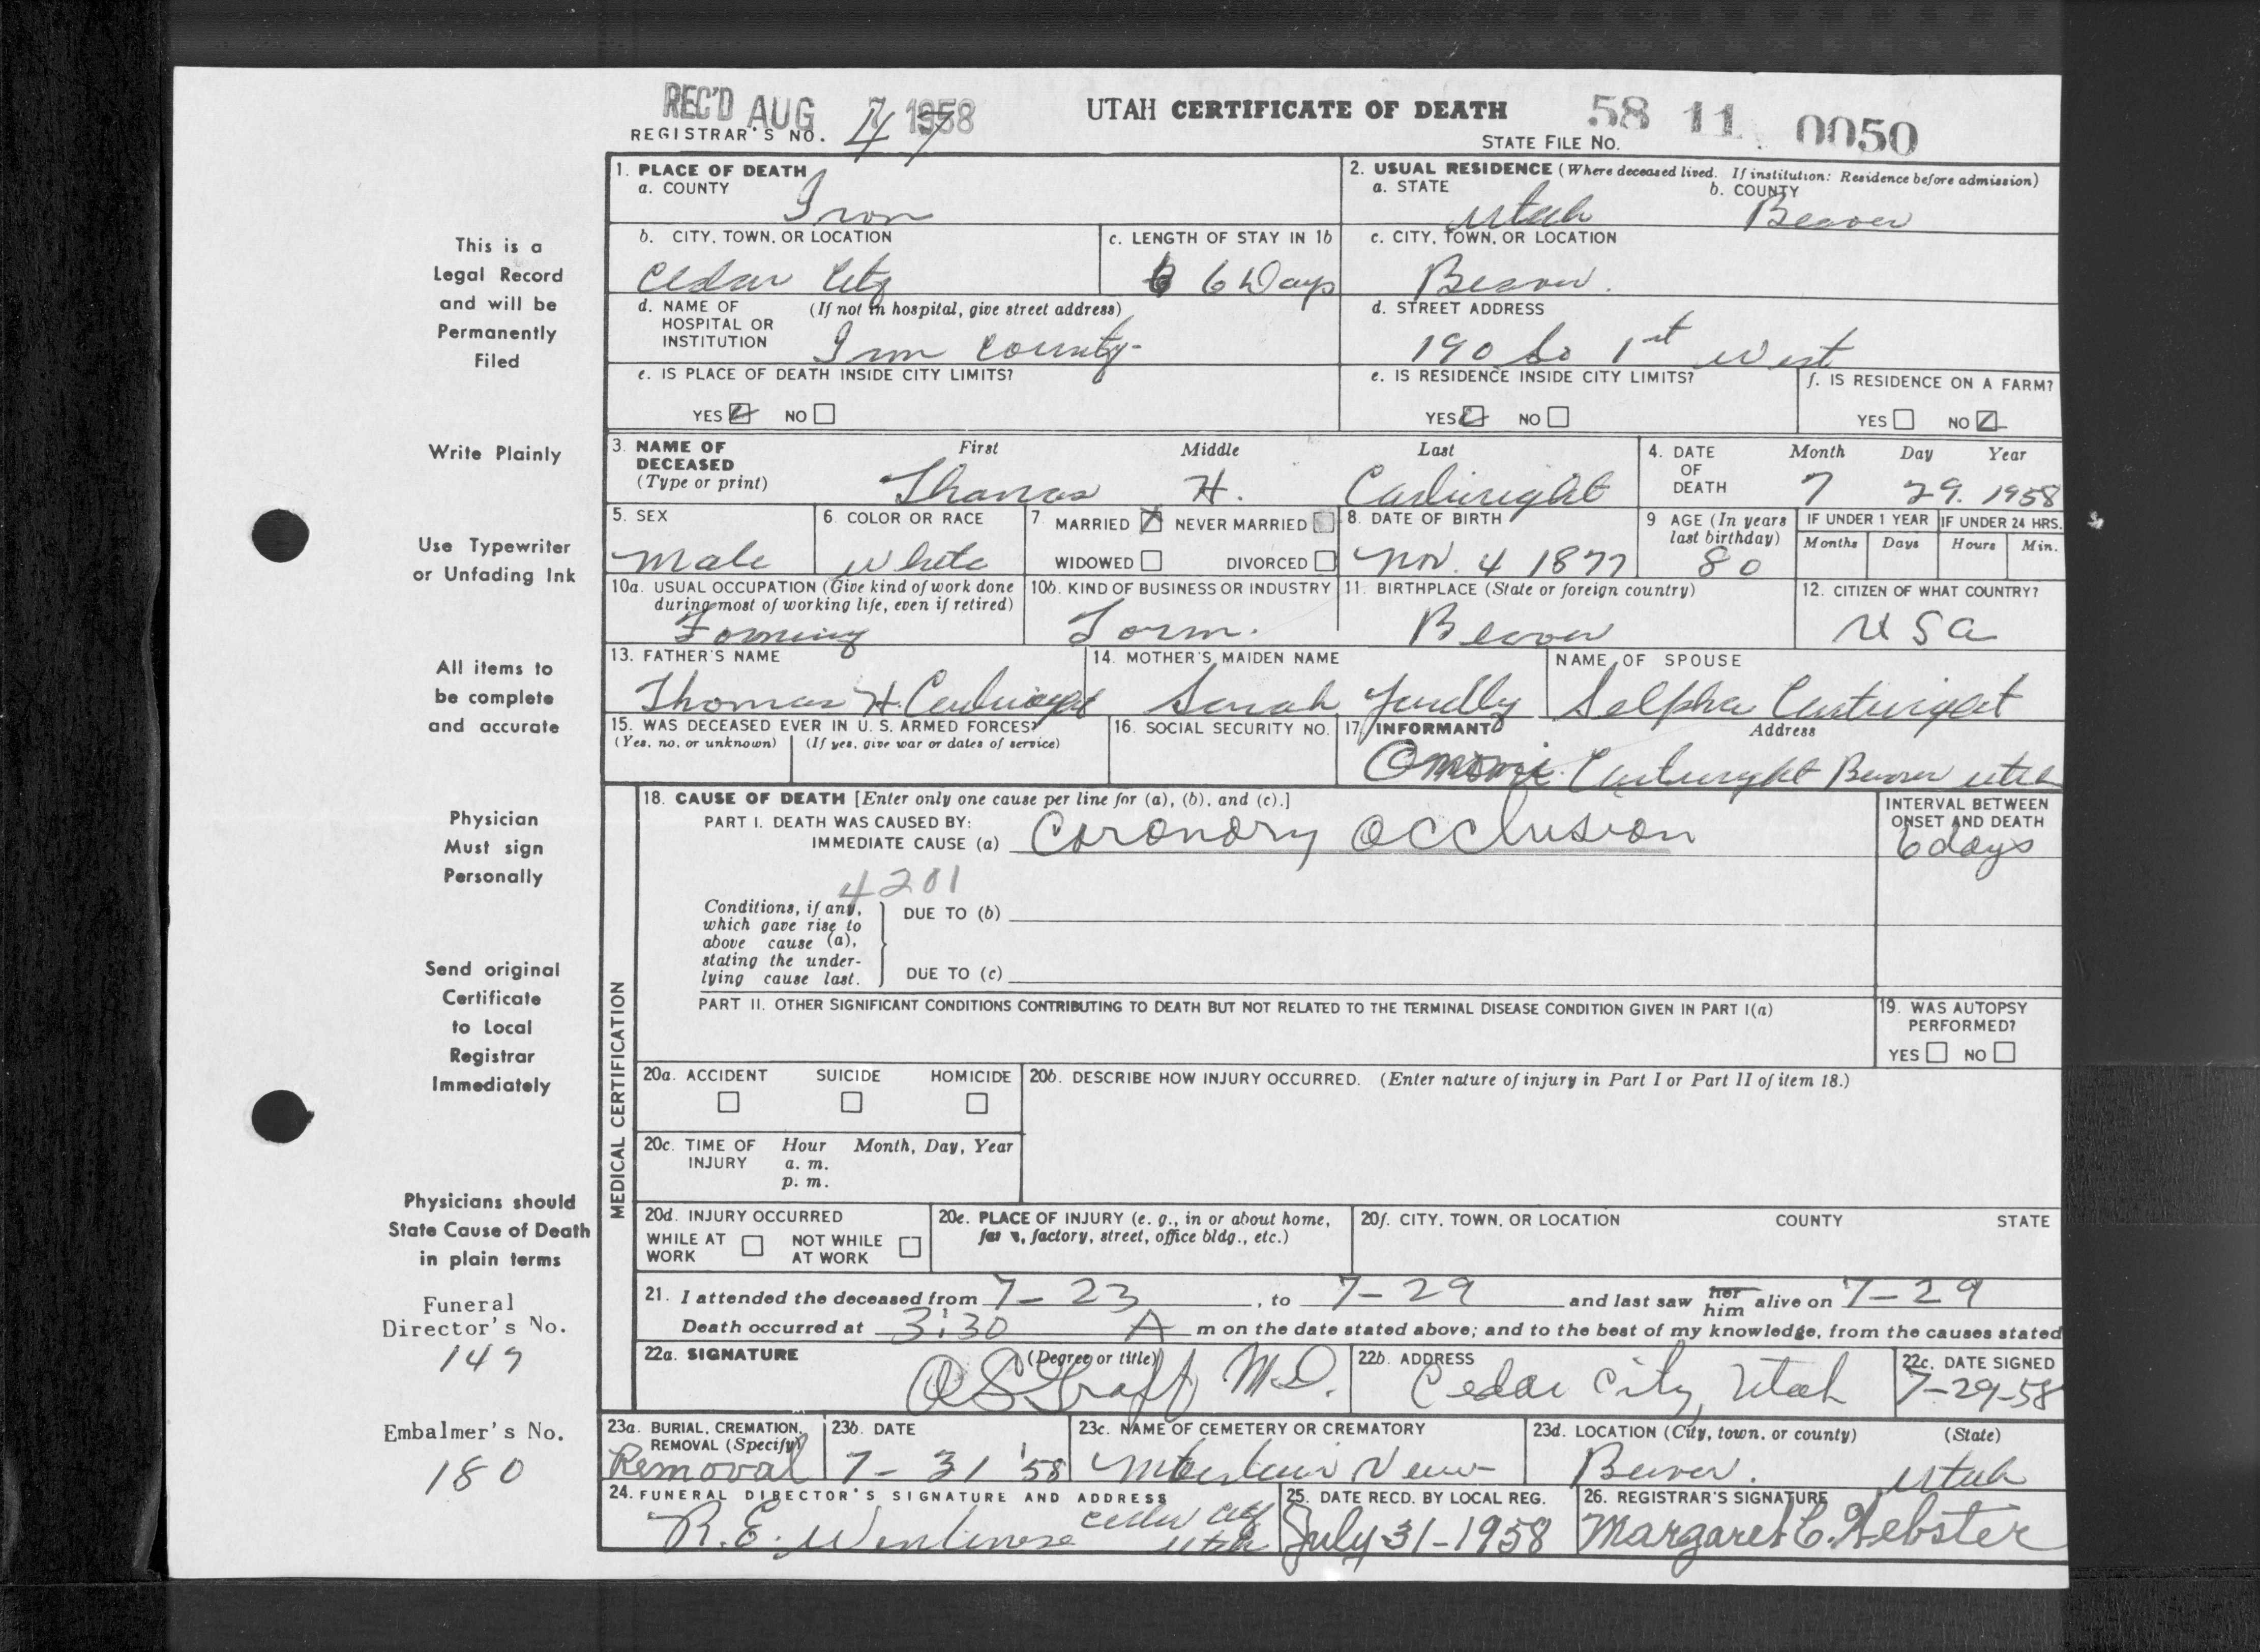 REC'D AUG 7 1958
UTAH CERTIFICATE OF DEATH
58 11 0050
REGISTRAR'S NO. 47
STATE FILE NO.
This is a
Legal Record
and will be
Permanently
Filed
Write Plainly
Use Typewriter
or Unfading Ink
All items to
be complete
and accurate
Physician
Must sign
Personally
Send original
Certificate
to Local
Registrar
Immediately
Physicians should
State Cause of Death
in plain terms
Funeral
Director's No.
147
Embalmer's No.
180
1. PLACE OF DEATH
a. COUNTY
Iron
2. USUAL RESIDENCE (Where deceased lived. If institution: Residence before admission)
a. STATE b. COUNTY
Utah Beaver
b. CITY, TOWN, OR LOCATION
Cedar City
c. LENGTH OF STAY IN 1b
6 Days
c. CITY, TOWN, OR LOCATION
Beaver.
d. NAME OF (If not in hospital, give street address)
HOSPITAL OR
INSTITUTION
Iron County
d. STREET ADDRESS
190 So 1st West
e. IS PLACE OF DEATH INSIDE CITY LIMITS?
YES NO
e. IS RESIDENCE INSIDE CITY LIMITS?
YES NO
f. IS RESIDENCE ON A FARM?
YES NO
3. NAME OF
DECEASED
(Type or print)
First Middle Last
Thomas H. Cartwright
4. DATE
OF
DEATH
Month Day Year
7 29. 1958
5. SEX
Male
6. COLOR OR RACE
White
7. MARRIED NEVER MARRIED
WIDOWED DIVORCED
8. DATE OF BIRTH
Nov. 4 1877
9 AGE (In years
last birthday)
80
IF UNDER 1 YEAR IF UNDER 24 HRS.
Months Days Hours Min.
10a. USUAL OCCUPATION (Give kind of work done
during most of working life, even if retired)
Farming
10b. KIND OF BUSINESS OR INDUSTRY
Farm.
11. BIRTHPLACE (State or foreign country)
Beaver
12. CITIZEN OF WHAT COUNTRY?
USA
13. FATHER'S NAME
Thomas H. Cartwright
14. MOTHER'S MAIDEN NAME
Sarah Yardly
NAME OF SPOUSE
Selpha Cartwright
15. WAS DECEASED EVER IN U. S. ARMED FORCES?
(Yes, no, or unknown) (If yes, give war or dates of service)
16. SOCIAL SECURITY NO.
17. INFORMANT Address
Cartwright Beaver Utah
MEDICAL CERTIFICATION
18. CAUSE OF DEATH [Enter only one cause per line for (a), (b), and (c).]
PART I. DEATH WAS CAUSED BY:
IMMEDIATE CAUSE (a) Coronary Occlusion
INTERVAL BETWEEN
ONSET AND DEATH
6 days
4201
Conditions, if any,
which gave rise to
above cause (a),
stating the under-
lying cause last.
DUE TO (b)
DUE TO (c)
PART II. OTHER SIGNIFICANT CONDITIONS CONTRIBUTING TO DEATH BUT NOT RELATED TO THE TERMINAL DISEASE CONDITION GIVEN IN PART I(a)
19. WAS AUTOPSY
PERFORMED?
YES NO
20a. ACCIDENT SUICIDE HOMICIDE
20b. DESCRIBE HOW INJURY OCCURRED. (Enter nature of injury in Part I or Part II of item 18.)
20c. TIME OF Hour Month, Day, Year
INJURY a. m.
p. m.
20d. INJURY OCCURRED
WHILE AT NOT WHILE
WORK AT WORK
20e. PLACE OF INJURY (e. g., in or about home,
factory, street, office bldg., etc.)
20f. CITY, TOWN, OR LOCATION COUNTY STATE
21. I attended the deceased from 7-23, to 7-29 and last saw her him alive on 7-29
Death occurred at 3:30 A m on the date stated above; and to the best of my knowledge, from the causes stated
22a. SIGNATURE (Degree or title)
Graff M.D.
22b. ADDRESS
Cedar City, Utah
22c. DATE SIGNED
7-29-58
23a. BURIAL, CREMATION,
REMOVAL (Specify)
Removal
23b. DATE
7-31 '58
23c. NAME OF CEMETERY OR CREMATORY
Mountain View
23d. LOCATION (City, town, or county) (State)
Beaver. Utah
24. FUNERAL DIRECTOR'S SIGNATURE AND ADDRESS
R.E. Cedar City
Utah
25. DATE RECD. BY LOCAL REG.
July 31-1958
26. REGISTRAR'S SIGNATURE
Margaret C. Webster